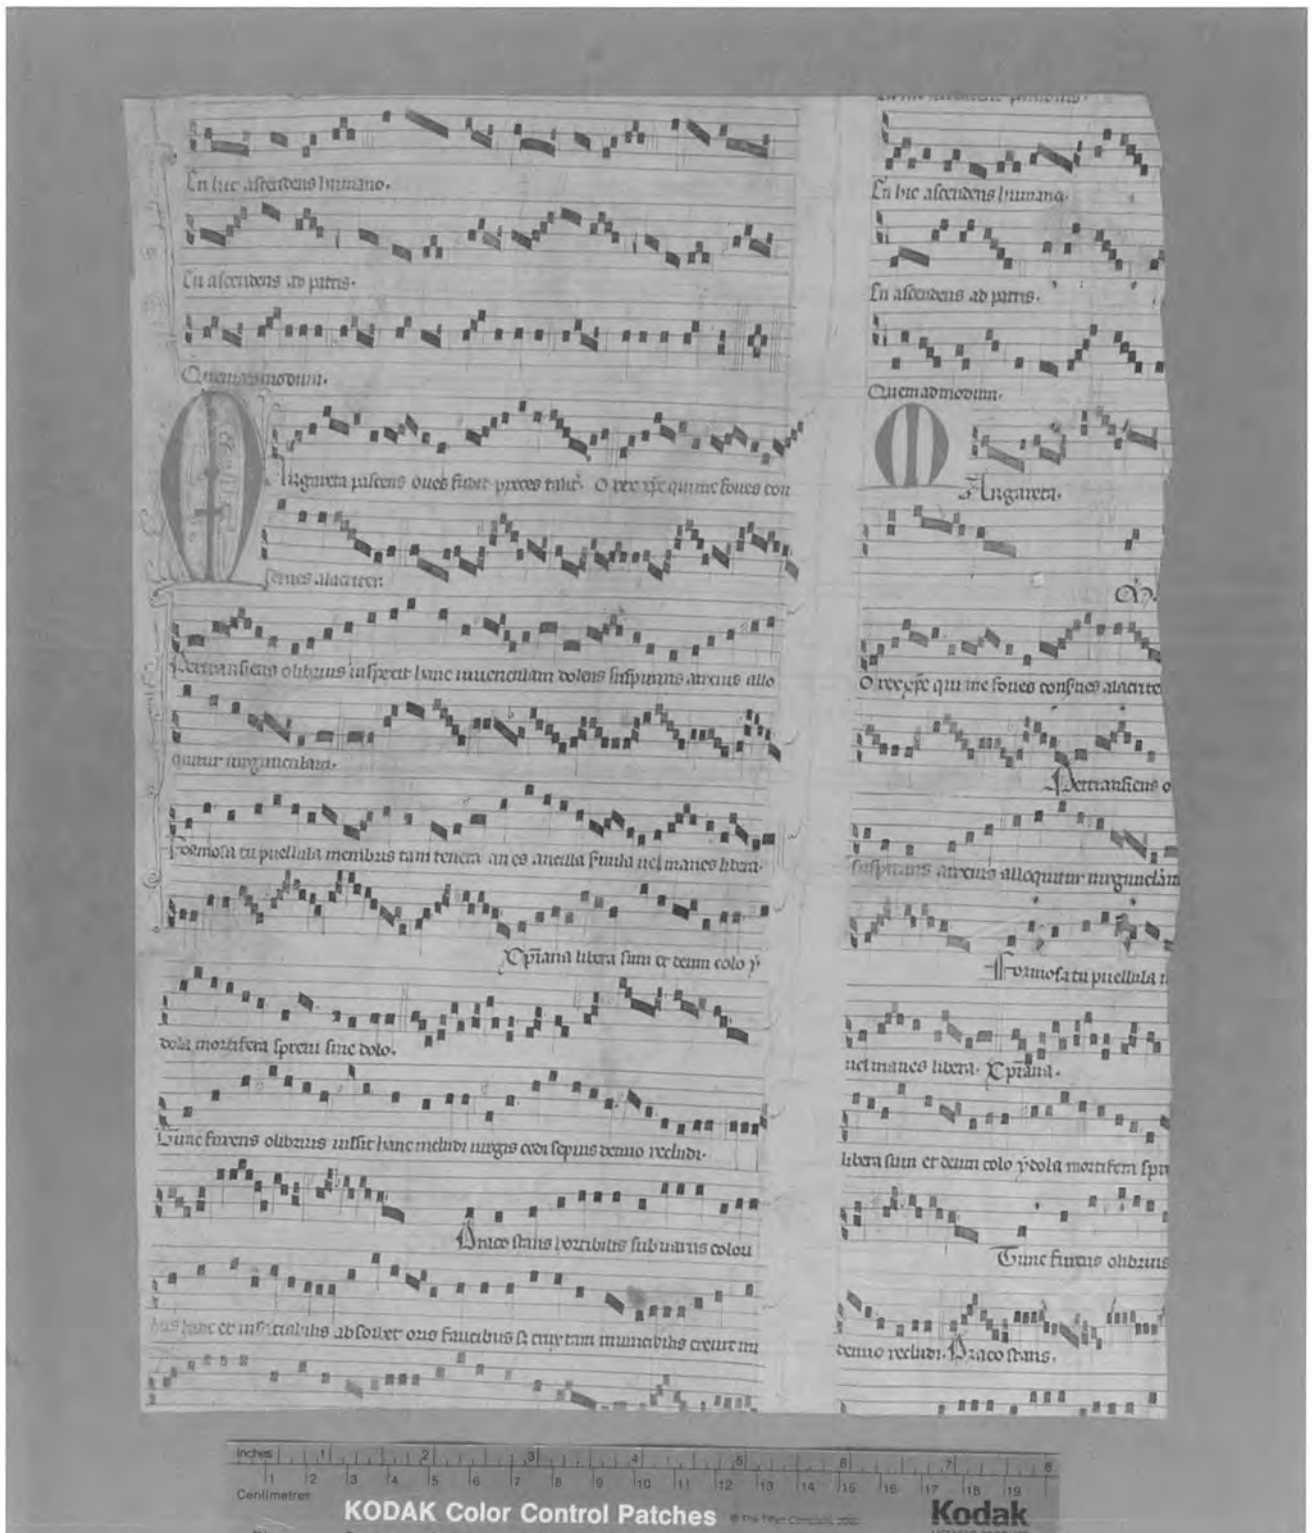 En huc ascendens humano.
En ascendens ad patris.
Quemadmodum.
Margareta pascens oues fudit preces O rex xp̄e qui me foues con
serues alacriter.
Pertransiens olibrius inspexit hanc iuuenculam dolens suspirans arcius allo
quitur uirgunculam.
Formosa tu puellula menibus tam tenera an es ancilla uel manes libera.
Xp̄iana libera sum et deum colo ẏ
dola mortifera spreui sine dolo.
Tunc furens olibrius iussit hanc includi uirgis cedi sepius denuo recludi.
Draco stans horribilis sub uariis colori
bus hanc et insaciabilis absorbet oris faucibus tam
En huc ascendens humana.
En ascendens ad patris.
Quemadmodum.
Margareta.
O rex xp̄e qui me foues conserues alacrite
Pertransiens o
suspirans arcius alloquitur uirgunculam
Formosa tu puellula
uel manes libera. Xp̄iana.
libera sum et deum colo ẏdola mortifera spre
Tunc furens olibrius
denuo recludi. Draco stans.
Inches 1 2 3 4 5 6 7 8
Centimetres 1 2 3 4 5 6 7 8 9 10 11 12 13 14 15 16 17 18 19
KODAK Color Control Patches
Kodak